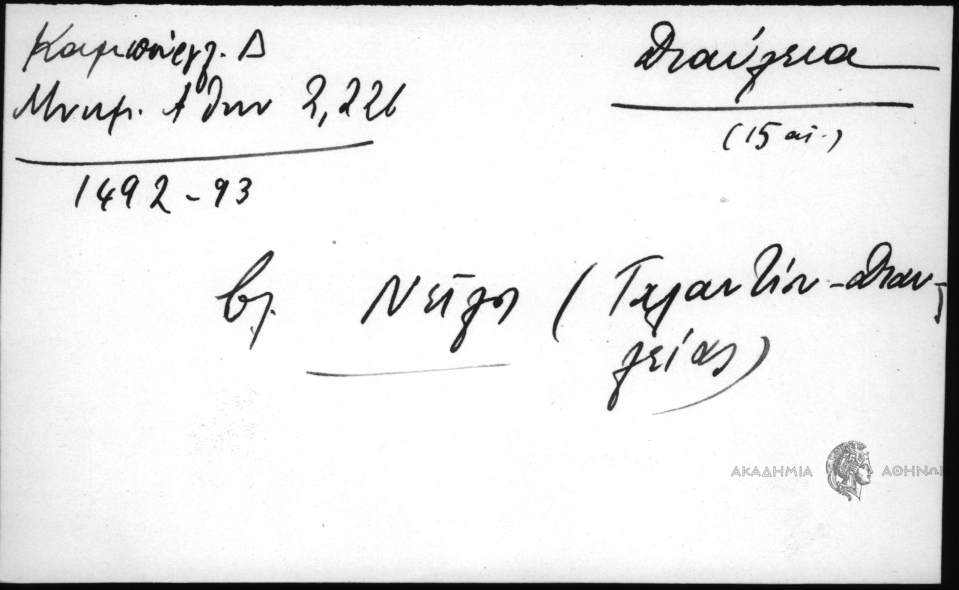 Καμπούρογλ. Δ
Μνημ. Αθην 2,226
1492-93
Διαύλεια
(15 αι.)
βλ. Νεῖλος (Ταλαντίου-Διαυ-
λείας)
ΑΚΑΔΗΜΙΑ ΑΘΗΝΩΝ